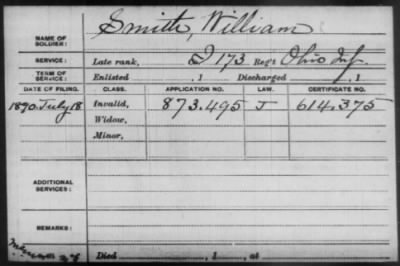 NAME OF SOLDIER: Smith, William
SERVICE: Late rank, I 173 Reg't Ohio Inf.
TERM OF SERVICE: Enlisted , 1 Discharged , 1
DATE OF FILING. CLASS. APPLICATION NO. LAW. CERTIFICATE NO.
1890. July 18 Invalid, 873.495 J 614.375
Widow,
Minor,
ADDITIONAL SERVICES:
REMARKS:
Died , 1 , at